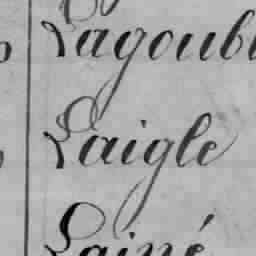 Lagoub
Laigle
Lainé